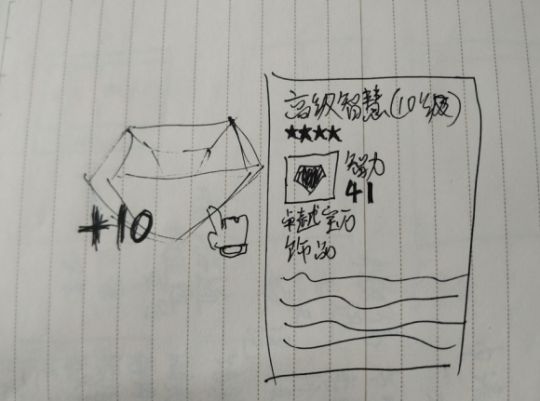 高级智慧(10级)
★★★★
智力
41
卓越宝石
饰品
+10